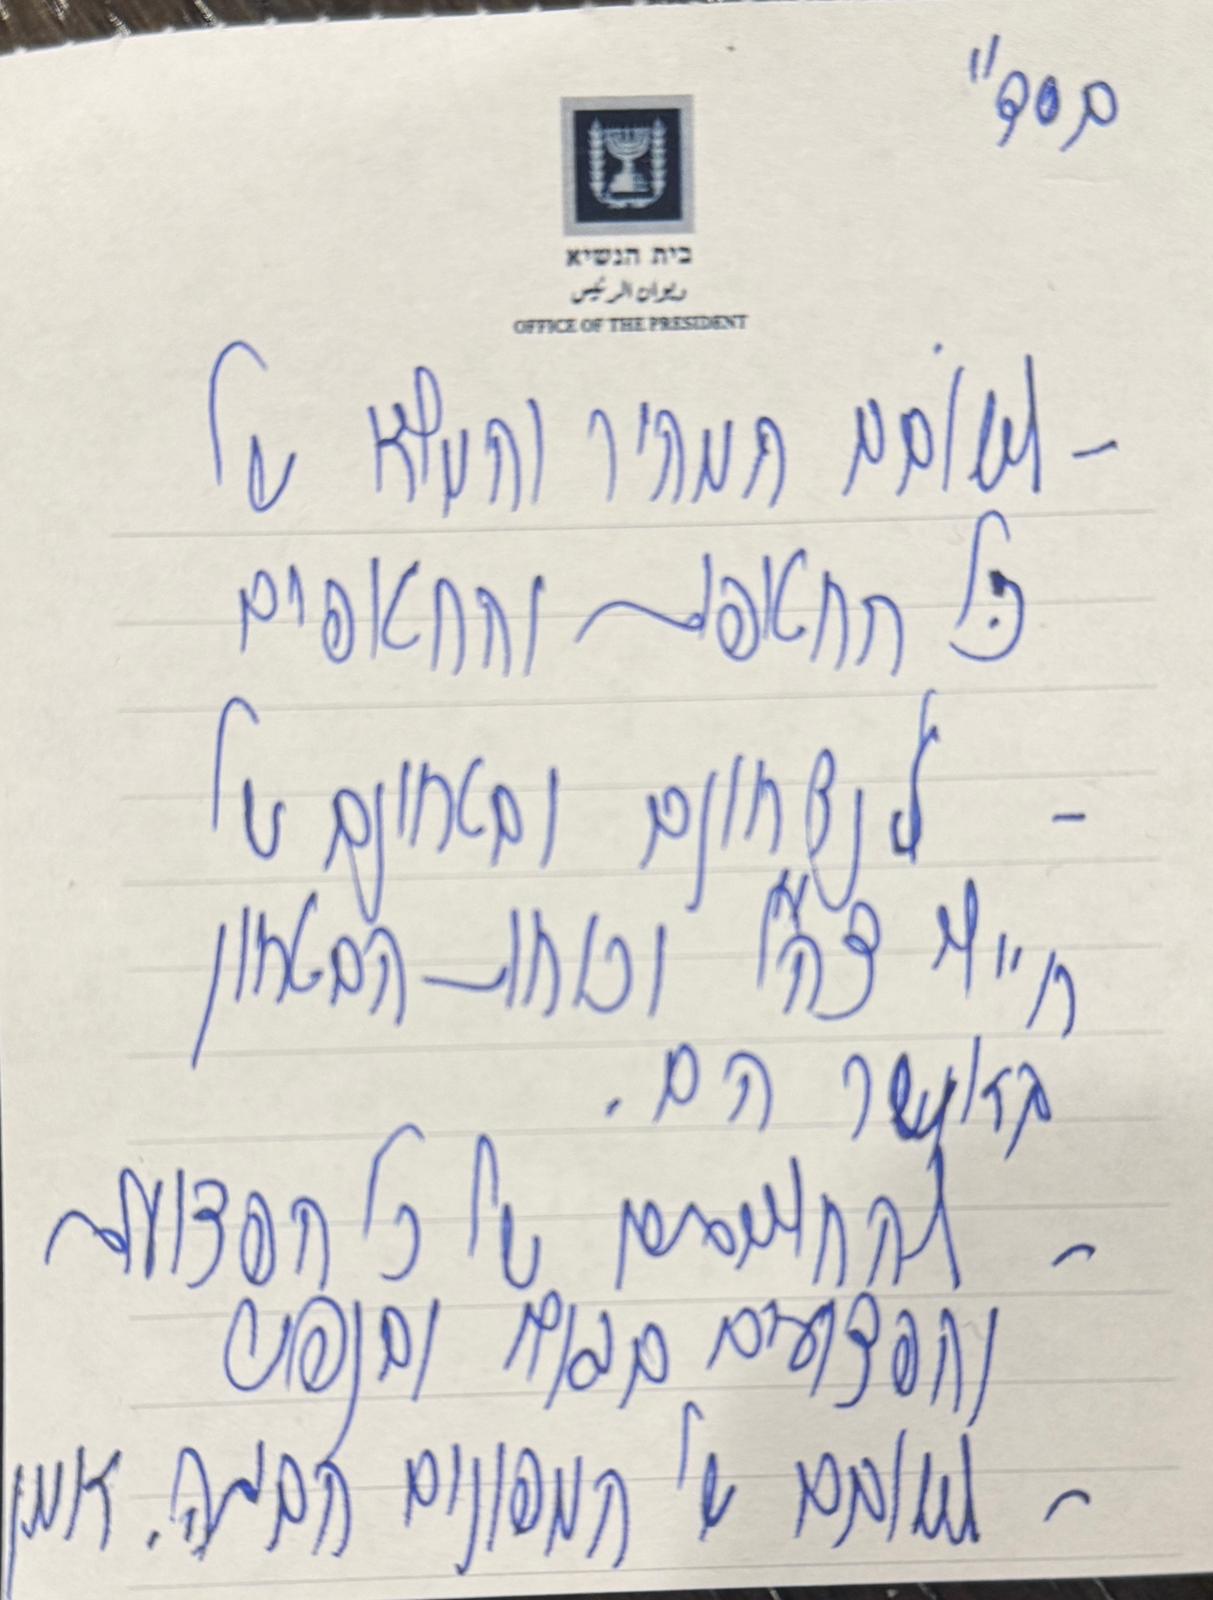 בס"ד
בית הנשיא
ديوان الرئيس
OFFICE OF THE PRESIDENT
- לשובם המהיר והמלא של
כל החטופות והחטופים
- לנצחונם ובטחונם של
חיילי צה"ל וכוחות הבטחון
באשר הם.
- להחלמתם של כל הפצועות
והפצועים בגוף ובנפש
- לשובם של המפונים הביתה. אמן